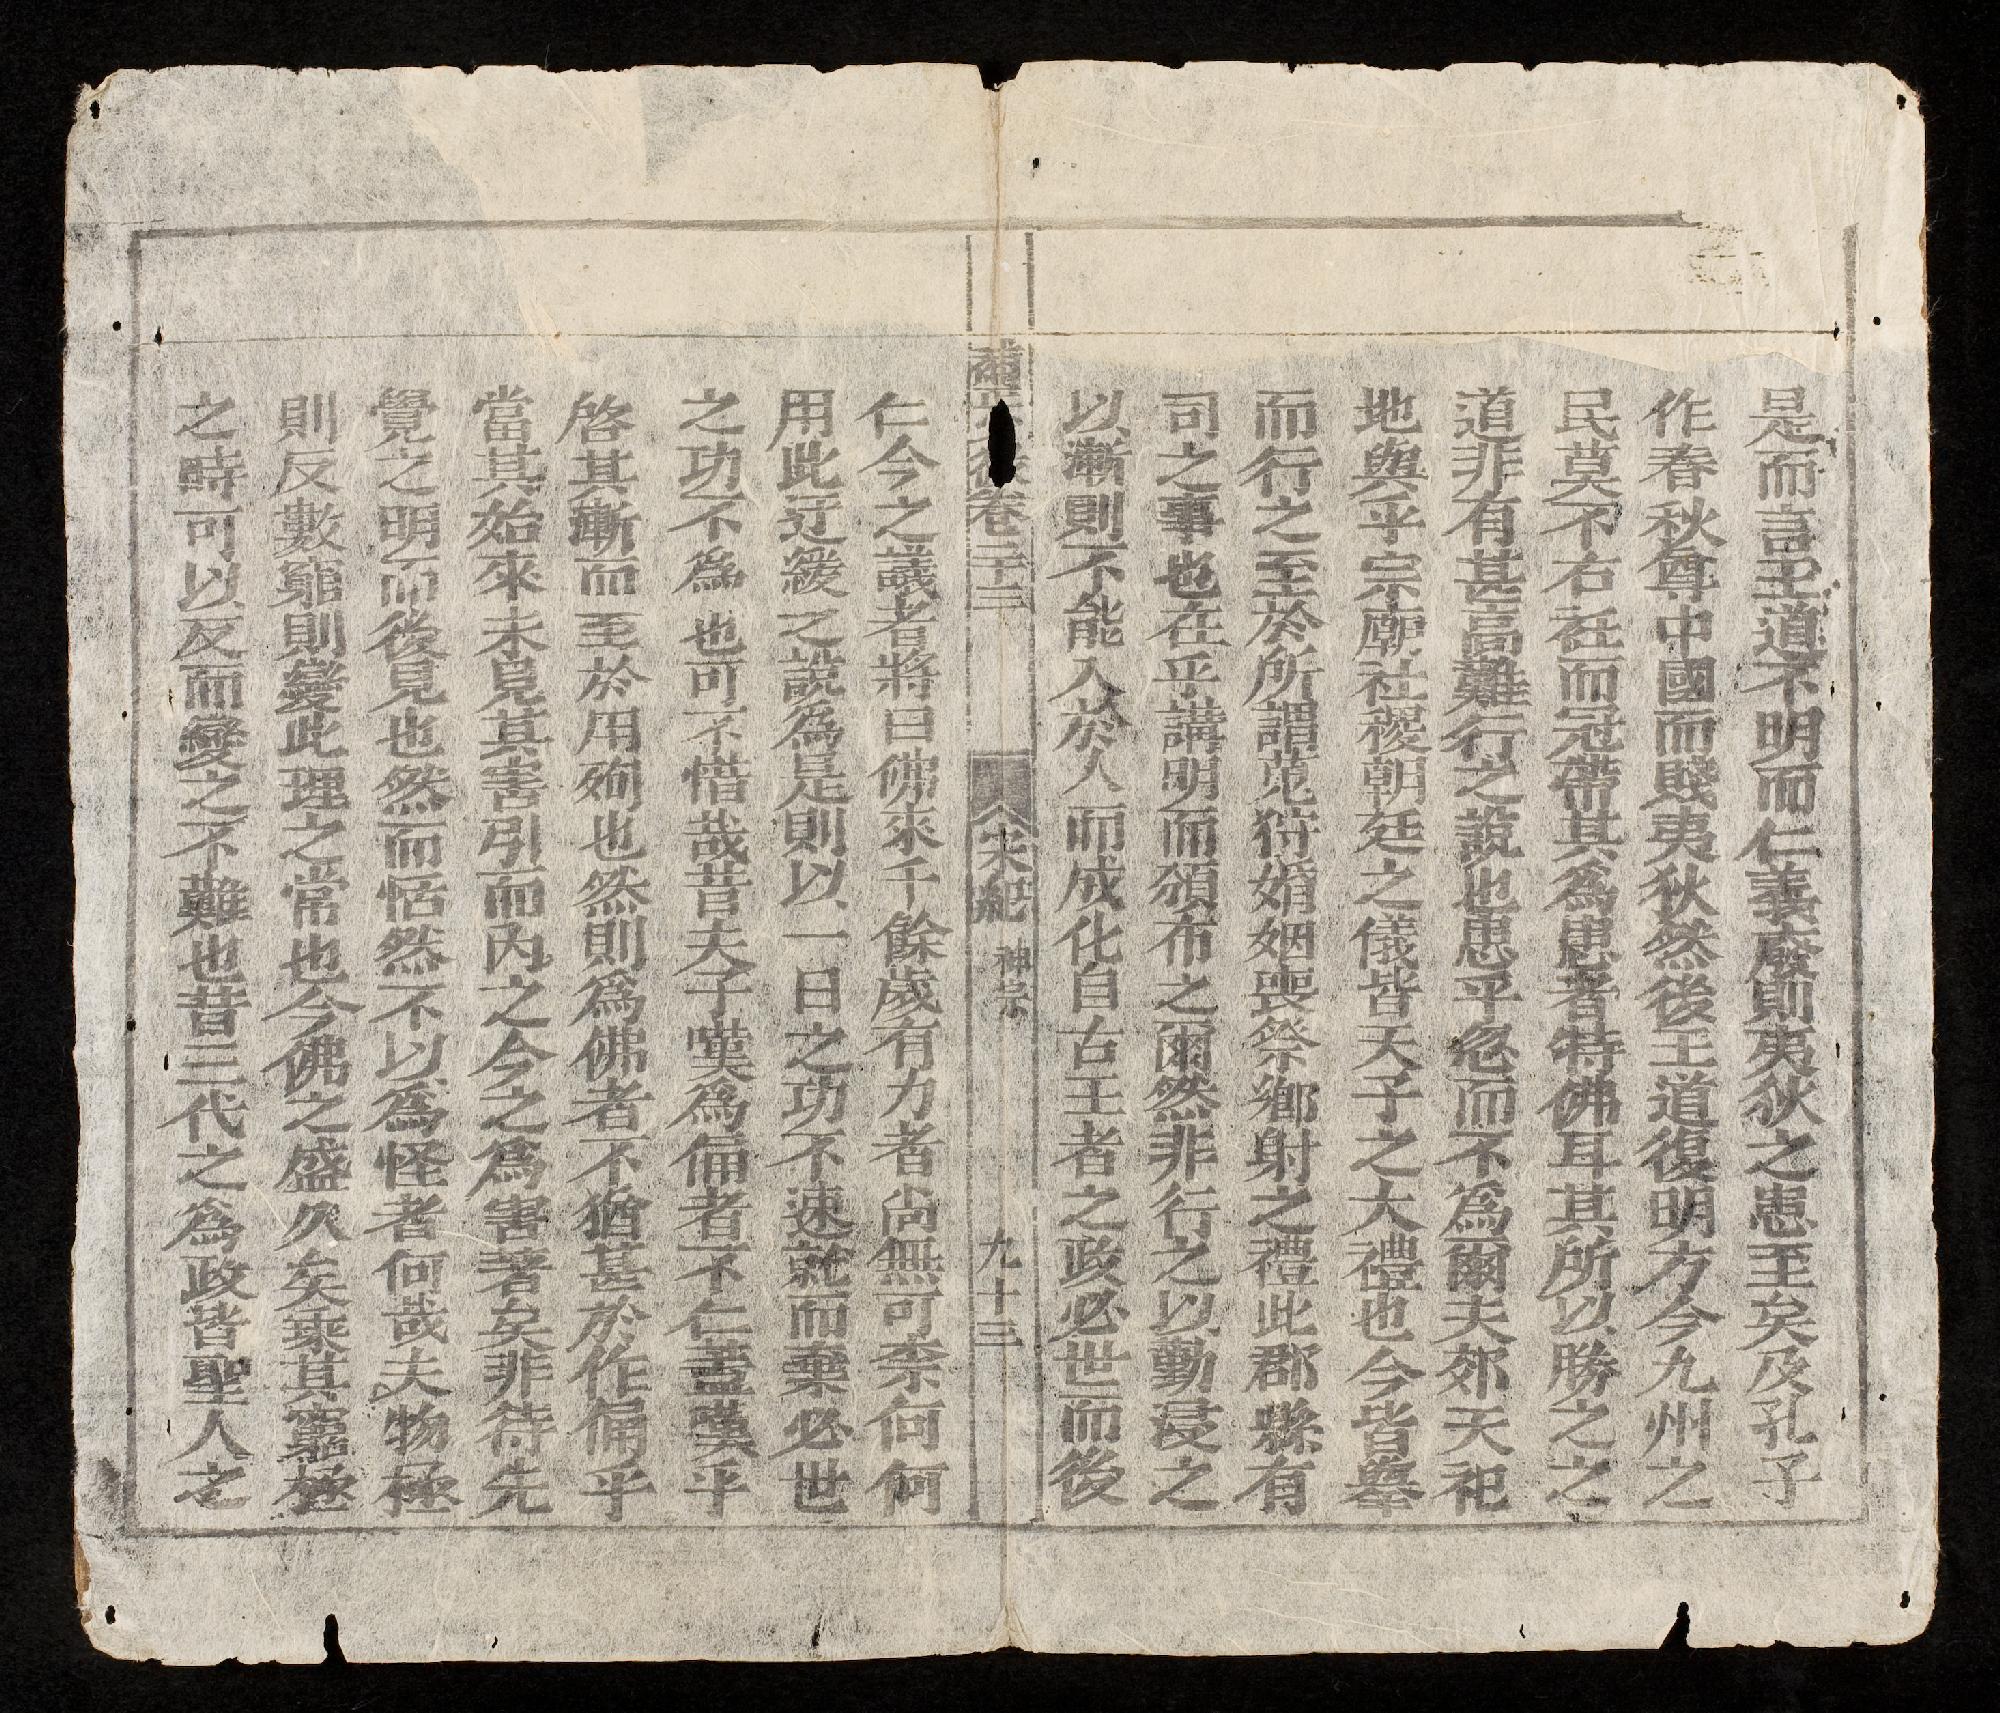 是而言王道不明而仁義廢則夷狄之患至矣及孔子
作春秋尊中國而賤夷狄然後王道復明方今九州之
民莫不右衽而冠帶其為患者特佛耳其所以勝之之
道非有甚高難行之說也患乎忽而不為爾夫郊天祀
地與乎宗廟社稷朝廷之儀皆天子之大禮也今皆舉
而行之至於所謂蒐狩婚姻喪祭鄉射之禮此郡縣有
司之事也在乎講明而頒布之爾然非行之以勤浸之
以漸則不能入於人而成化自古王者之政必世而後
卷二十三 宋紀 神宗 九十三
仁今之議者將曰佛來千餘歲有力者尚無可柰何何
用此迂緩之說為是則以一日之功不速就而棄必世
之功不為也可不惜哉昔夫子嘆為俑者不仁蓋嘆乎
啓其漸而至於用殉也然則為佛者不猶甚於作俑乎
當其始來未見其害引而內之今之為害著矣非待先
覺之明而後見也然而恬然不以為怪者何哉夫物極
則反數窮則變此理之常也今佛之盛久矣乘其窮極
之時可以反而變之不難也昔三代之為政皆聖人之